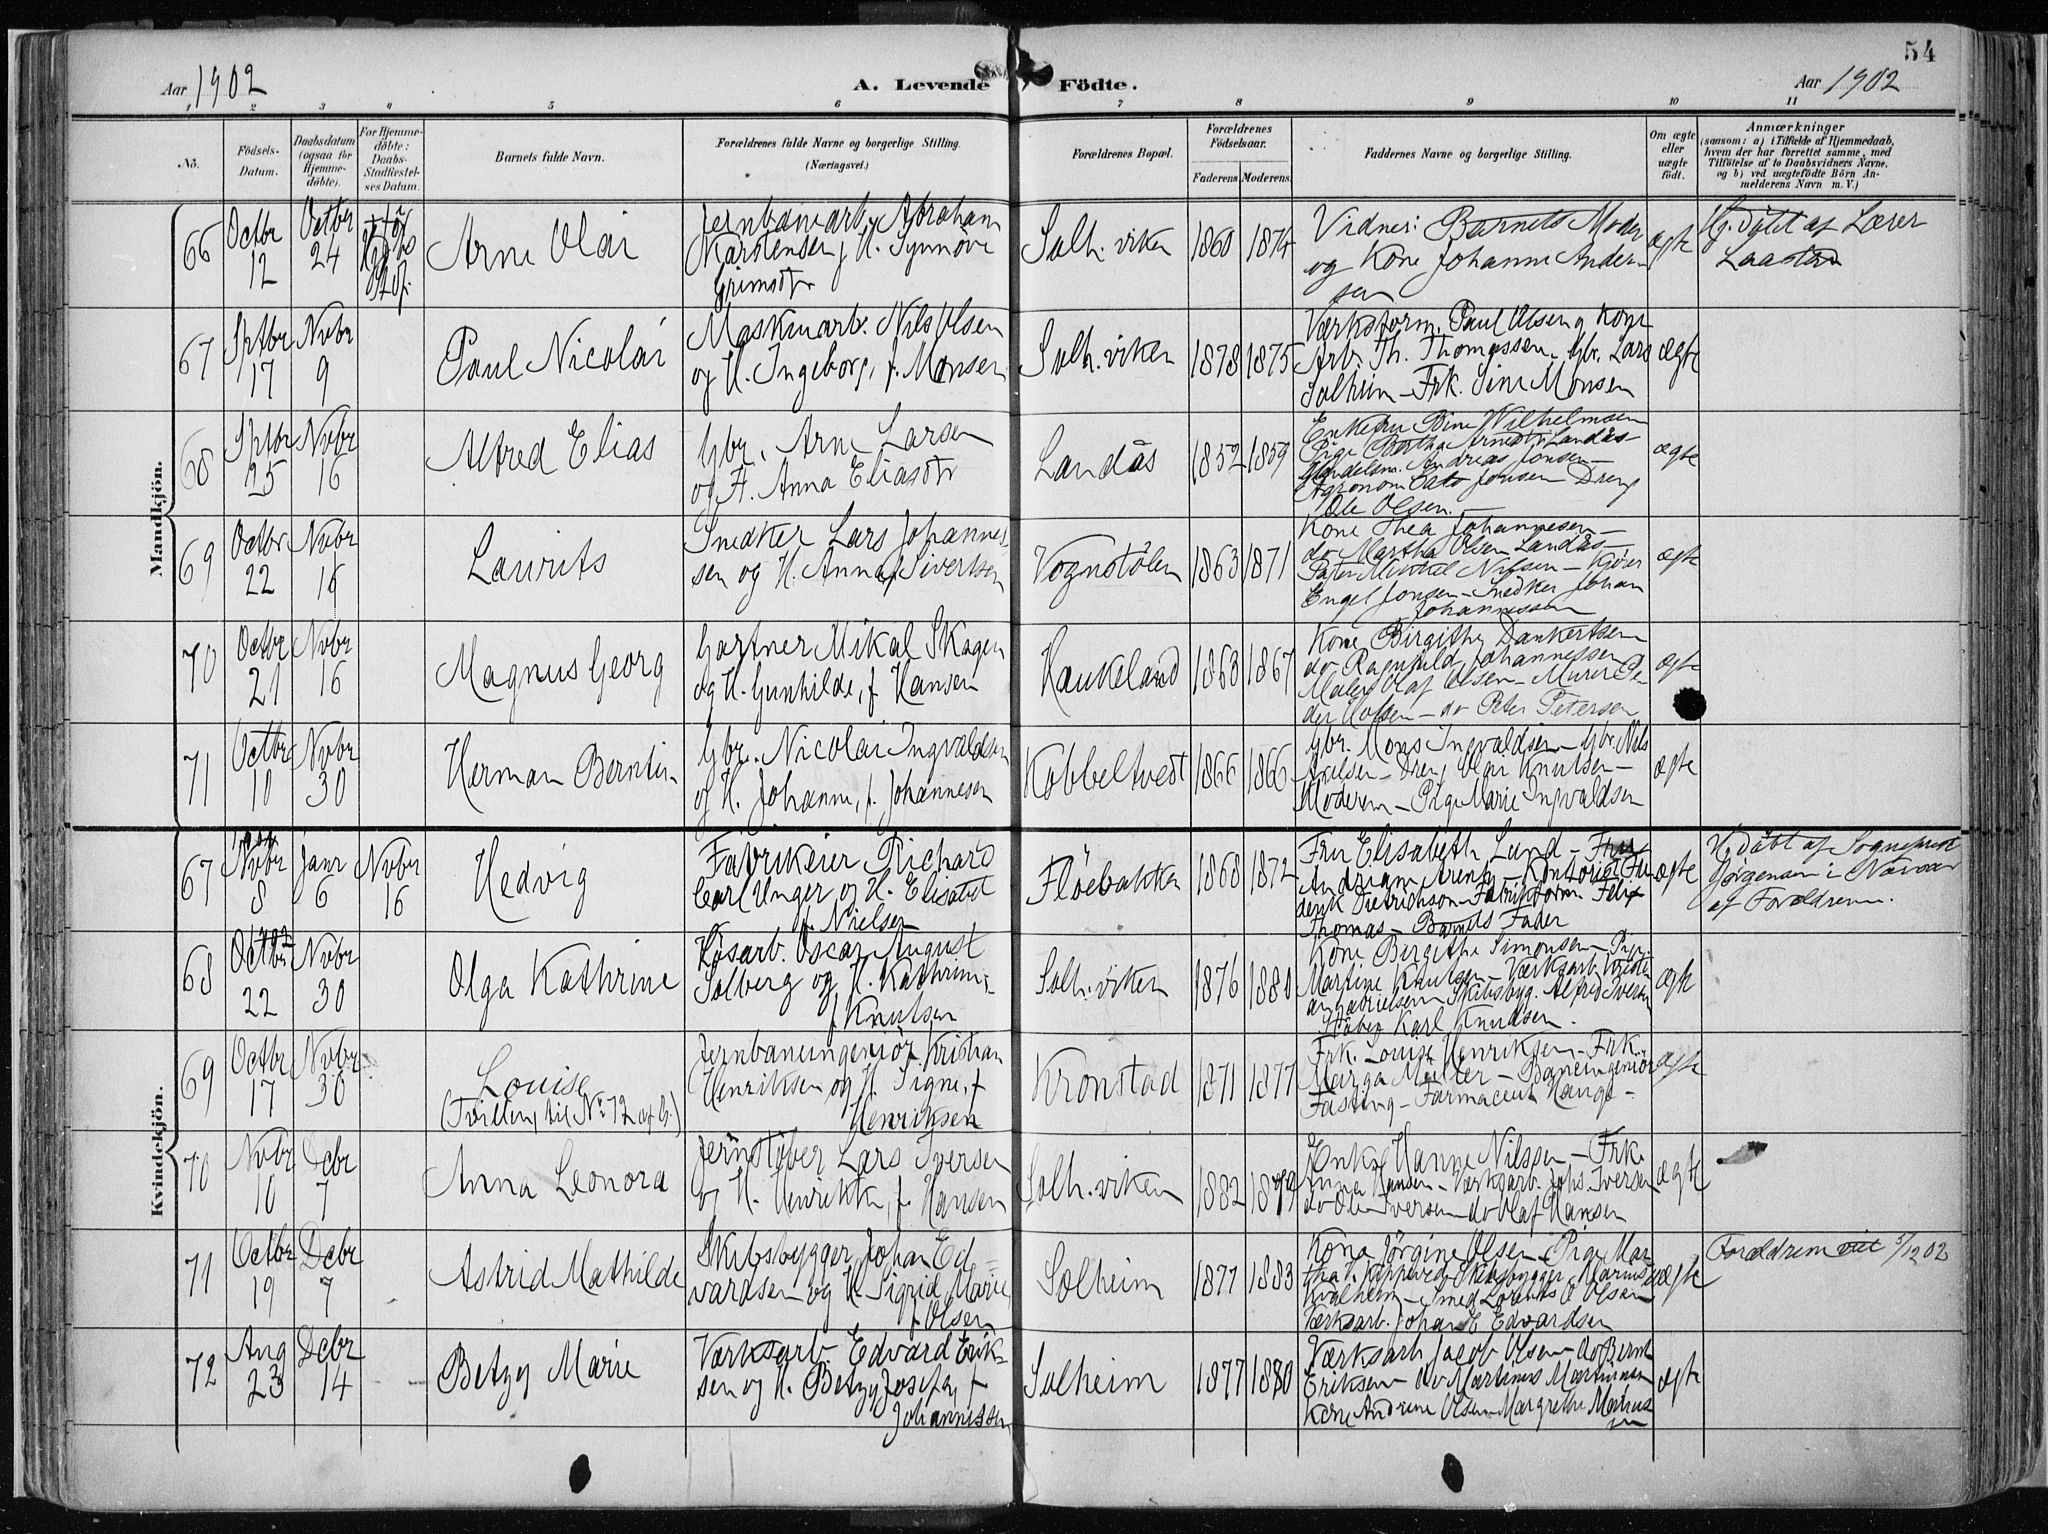 54
Aar 1902
A. Levende Födte.
Aar 1902
1 2 3 4 5 6 7 8 9 10 11
No.
Födsels-
Datum.
Daabsdatum
(ogsaa for
Hjemme-
döbte).
For Hjemme-
döbte:
Daabs-
Stadfæstel-
ses Datum.
Barnets fulde Navn.
Forældrenes fulde Navne og borgerlige Stilling.
(Næringsvei.)
Forældrenes Bopæl.
Forældrenes
Födselsaar.
Faderens. Moderens.
Faddernes Navne og borgerlige Stilling.
Om ægte
eller
uægte
födt.
Anmærkninger
(saasom: a) i Tilfælde af Hjemmedaab,
hvem der har forrettet samme, med
Tilföielse af to Daabsvidners Navne,
og b) ved uægtefödte Börn An-
melderens Navn m. V.)
Mandkjön.
66
Octbr
12
Octbr
24
Arne Olai
Jernbanearb. Abraham
Karstensen og H. Synnöve
Grimsdtr
Solh.viken
1860
1874
Vidner: Barnets Moder
og Kone Johanne Ander-
sen
ægte
Hj.döbt af Lærer
Laastad
67
Sptbr
17
Nvbr
9
Paul Nicolai
Maskinarb. Nils Olsen
og H. Ingeborg, f. Monsen
Solh.viken
1878
1875
Værksform. Paul Olsen og Kone
Arb. Th. Thomassen – Gbr. Lars
Solheim – Frk. Sine Monsen
ægte
68
Sptbr
25
Nvbr
16
Alfred Elias
Gbr. Arne Larsen
og H. Anna Eliasdtr
Landås
1852
1859
Enkefru Bine Wilhelmsen
Pige Bertha Arnedtr Landås –
Handelsm. Andreas Jonsen –
Agronom Cato Jonsen Dreng
Ole Olsen. –
ægte
69
Octbr
22
Nvbr
16
Laurits
Snedker Lars Johannes-
sen og H. Anna f. Sivertsen
Vognstölen
1863
1871
Kone Thea Johannesen –
do Martha Olsen Landås –
Nilsen – Kjører
Engel Jonsen – Snedker Johan
Johannessen
ægte
70
Octbr
21
Nvbr
16
Magnus Georg
Gartner Mikal Skagen
og H. Gunhilde, f. Hansen
Haukeland
1868
1867
Kone Birgithe Dankertsen
do Ragnhild Johannessen
Maler Olaf Olsen – Murer Pe-
der Olsen – do Peter Petersen
ægte
71
Octbr
10
Nvbr
30
Herman Berntin
Gbr. Nicolai Ingvaldsen
og H. Johanne, f. Johannesen
Kobbeltvedt
1866
1866
Gbr. Mons Ingvaldsen – Gbr. Nils
Axelsen – Dreng Olai Knutsen –
Moderen – Pige Marie Ingvaldsen
ægte
Kvindekjön.
67
Nvbr
8
Janr
6
Nvbr
16
Hedvig
Fabrikeier Richard
Carl Unger og H. Elisabet
f. Nielsen
Flöebakken
1868
1872
Fru Elisabeth Lund – Fru
Arentz – Kontorist Fre-
derik Dietrichson – Fabrikform. Felix
Thomas – Barnets Fader
ægte
Hj.döbt af Sognepræst
Jörgensen i Nærvær
af Forældrene.
68
Octbr
22
Nvbr
30
Olga Kathrine
Oscar August
Solberg og H. Kathrine,
f. Knutsen
Solh.viken
1876
1880
Kone Birgithe Simonsen – Pige
Martine Knutsen – Værksarb. Kristi-
an Gabrielsen Skibsbyg. Alfred Iversen
Stöber Karl Knudsen.
ægte
69
Octbr
17
Nvbr
30
Louise
(Tvilling til No 72 af G.)
Jernbaneingeniör Kristian
Henriksen og H. Signe, f.
Henriksen
Kronstad
1871
1877
Frk. Louise Henriksen – Frk.
Marga Möller – Baneingeniör
Fasting – Farmaceut Hauge –
ægte
70
Nvbr
10
Dcbr
7
Anna Leonora
Jernstöber Lars Iversen
og H. Henrikke, f. Hansen
Solh.viken
1882
1879
Enke Hanne Nilssen – Frk.
Anna Hansen – Værksarb. Johs. Iversen
do Ole Iversen do Olaf Hansen
ægte
71
Octbr
19
Dcbr
7
Astrid Mathilde
Skibsbygger Johan Ed-
vardsen og H. Sigrid Marie
f. Olsen
Solheim
1877
1883
Kone Jörgine Olsen – Pige Mar-
tha – Skibsbygger Marius
Kvalheim – Smed Lorents O Olsen
Værksarb. Johan E Edvardsen
ægte
Forældrene viet 5/12 02
72
Aug
23
Dcbr
14
Betzy Marie
Værksarb. Edvard Erik-
sen og H. Betzy Josefa, f.
Johannessen
Solheim
1877
1880
Værksarb. Jacob Olsen – do Bernt
Eriksen – do Martinus Martinsen
Kone Andrine Olsen – Margrethe Marius-
sen
ægte